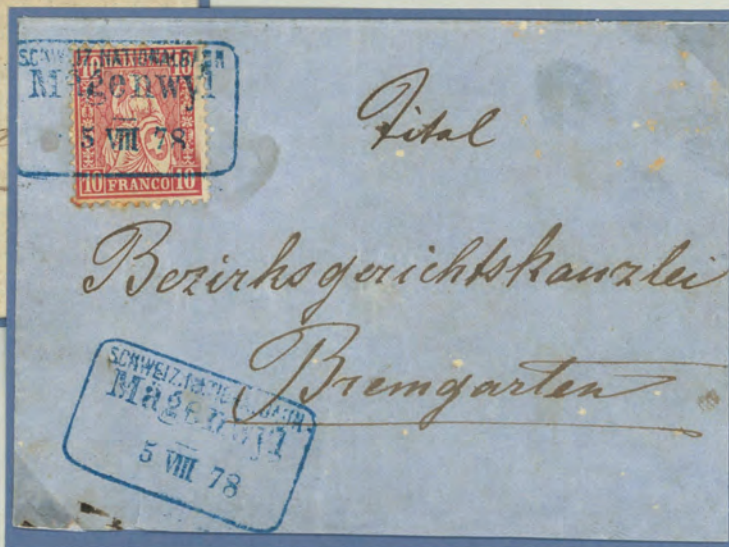 SCHWEIZ. NATIONALBAHN
Mägenwyl
5 VIII 78
10 FRANCO 10
Bezirksgerichtskanzlei
Bremgarten
SCHWEIZ. NATIONALBAHN
Mägenwyl
5 VIII 78